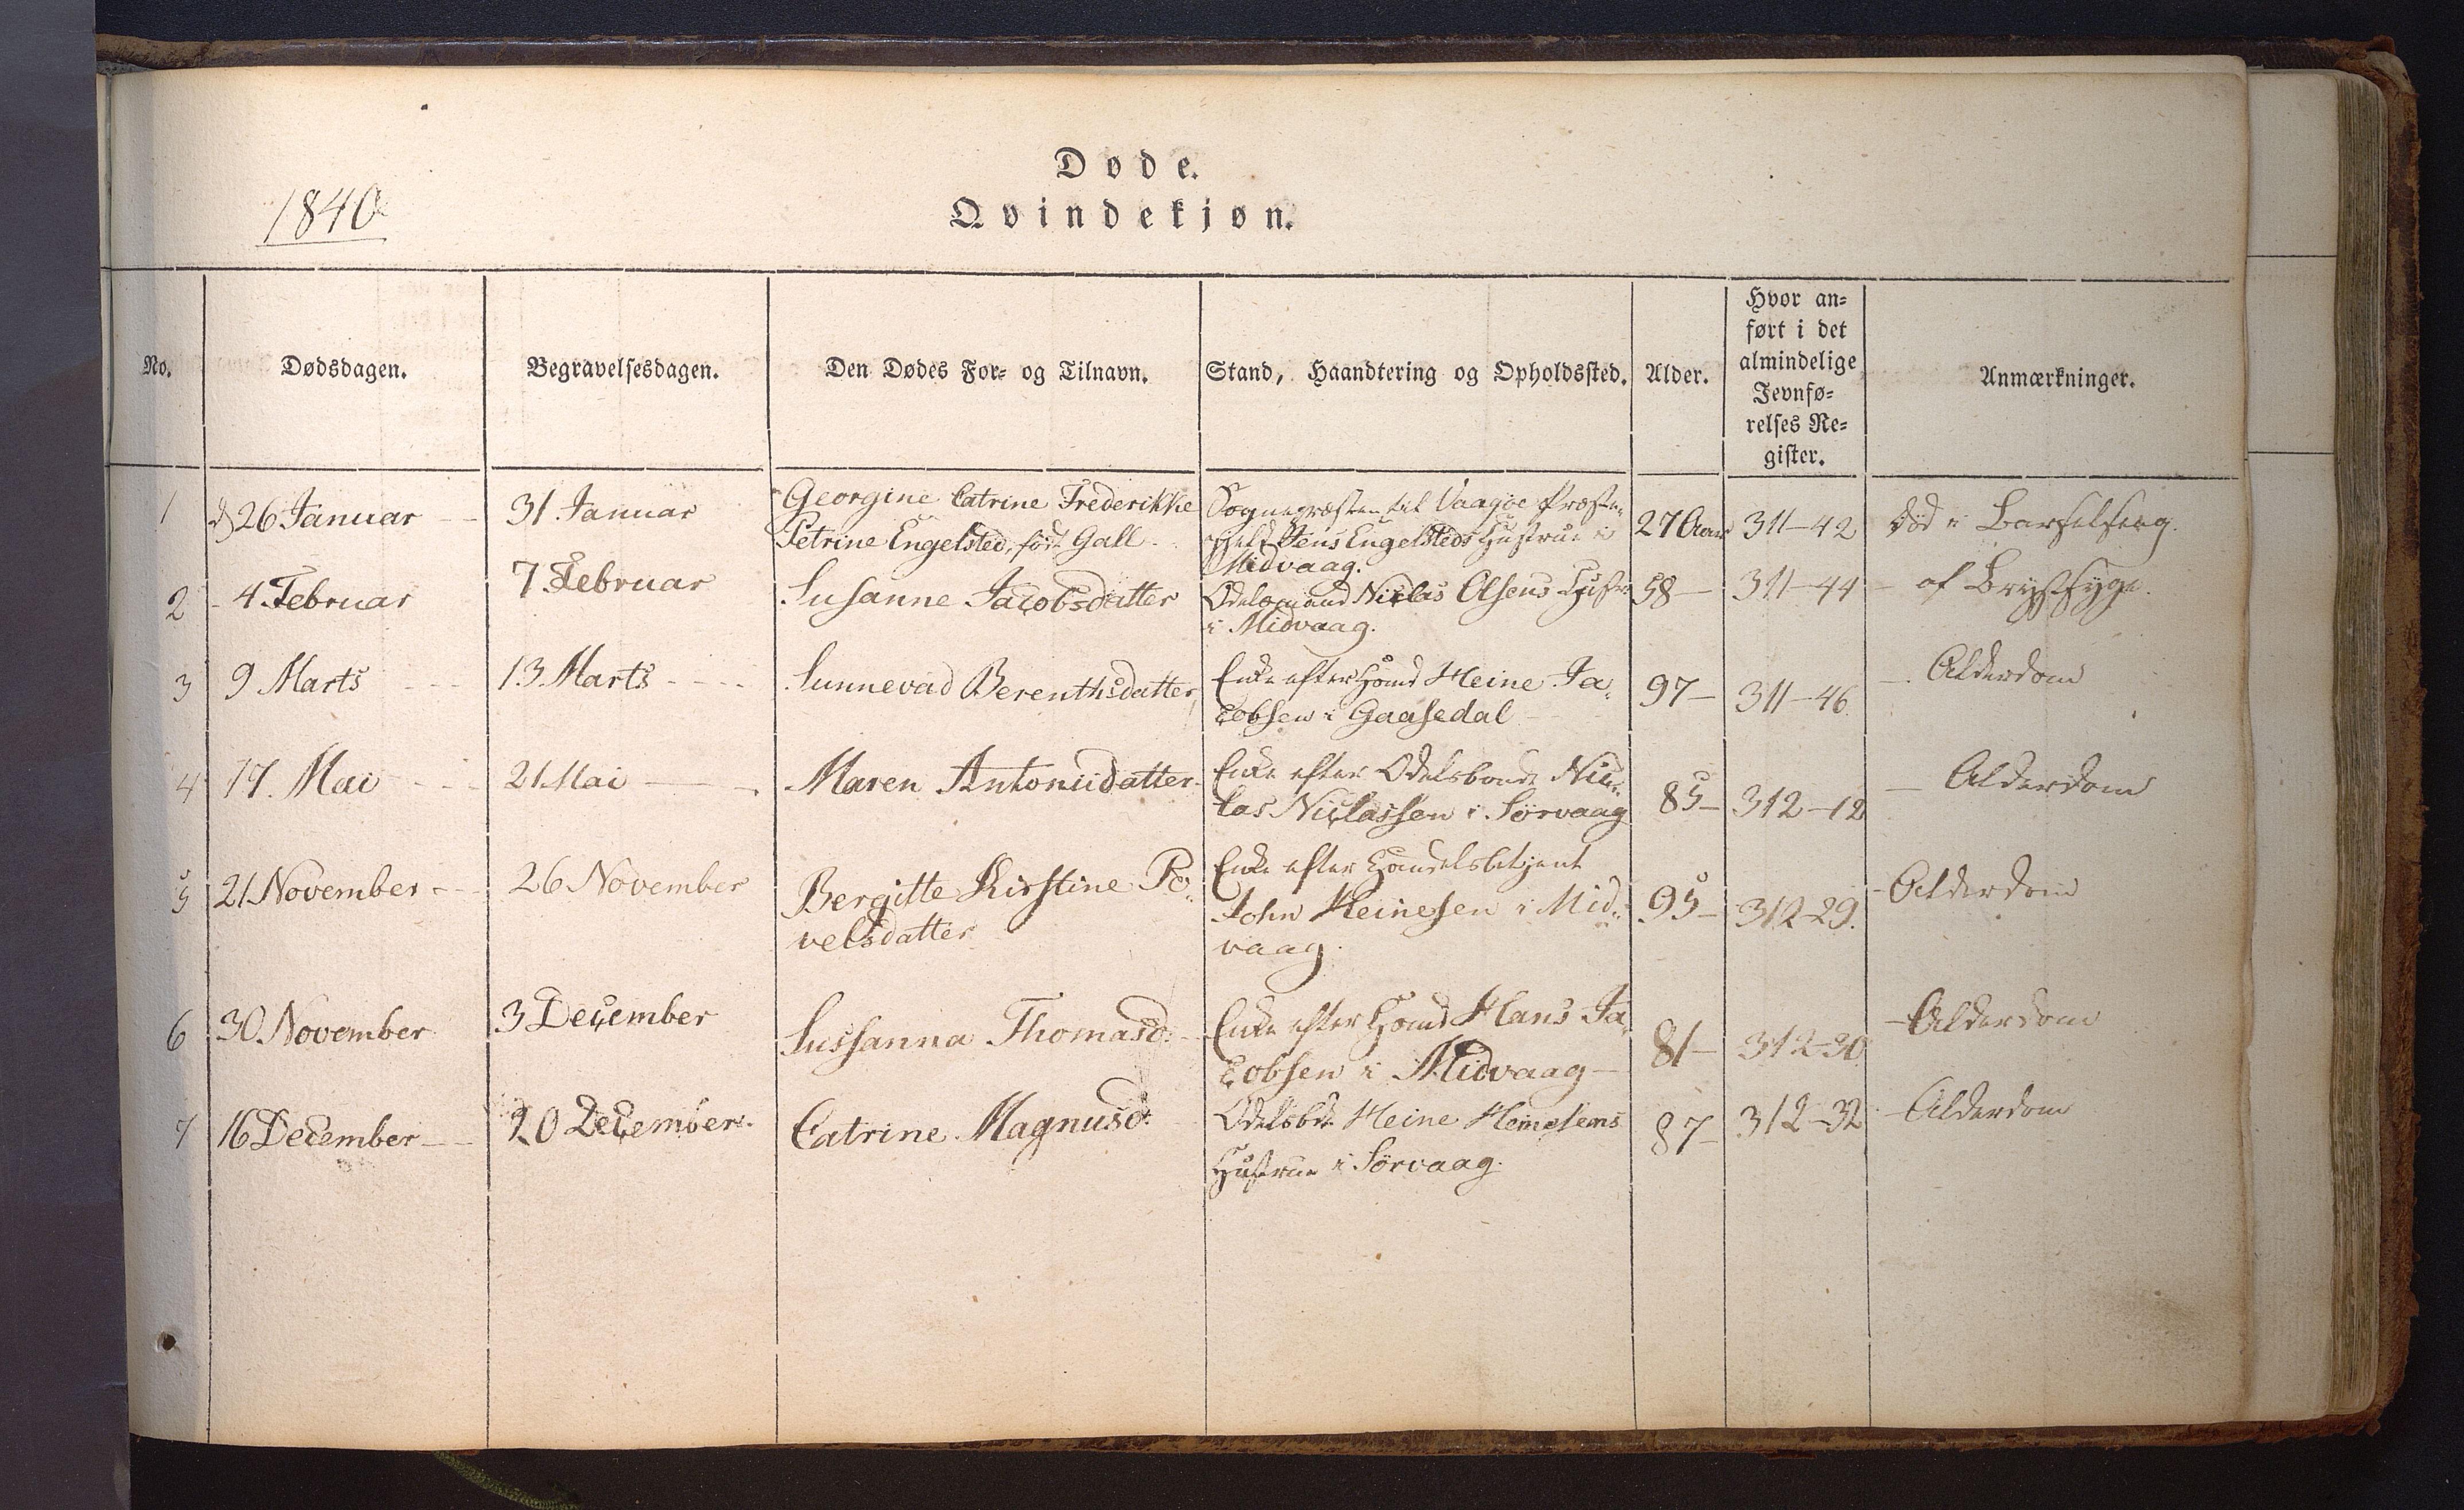 Døde.
1840
Qvindekjøn.
No.
Dødsdagen.
Begravelsesdagen.
Den Dødes For- og Tilnavn.
Stand, Haandtering og Opholdssted.
Alder.
Hvor an=
ført i det
almindelige
Jevnfø=
relses Re=
gister.
Anmærkninger.
1
d 26 Januar
31. Januar
Georgine Catrine Frederikke
Petrine Engelsted, født Gall.
Sognepræsten til Vaagøe Præste-
gjeld Jens Engelsteds Hustrue i
Midvaag.
27 Aar
311-42
død i Barselseng.
2
4. Februar
7. Februar
Susanne Jacobsdatter
Odelsmand Niclas Olsens Hustr
i Midvaag.
58
311-44
af Brystsyge.
3
9 Marts
13 Marts
Sunnevad Berenthsdatter
Enke efter Hmd Heine Ja-
cobsen i Gaasedal
97
311-46
Alderdom
4
17. Mai
21 Mai
Maren Antoniidatter
Enke efter Odelsbonde Nic-
las Niclassen i Sørvaag
85
312-12
Alderdom
5
21 November
26 November
Bergitte Kirstine Po-
velsdatter
Enke efter Handelsbetjent
John Heinesen i Mid-
vaag.
95
312-29.
Alderdom
6
30. November
3 December
Sussanna Thomasd:
Enke efter Hmd Hans Ja-
cobsen i Midvaag
81
312-30
Alderdom
7
16 December
20 December.
Catrine Magnusd:
Odelsbd. Heine Heinesens
Hustrue i Sørvaag.
87
312-32
Alderdom